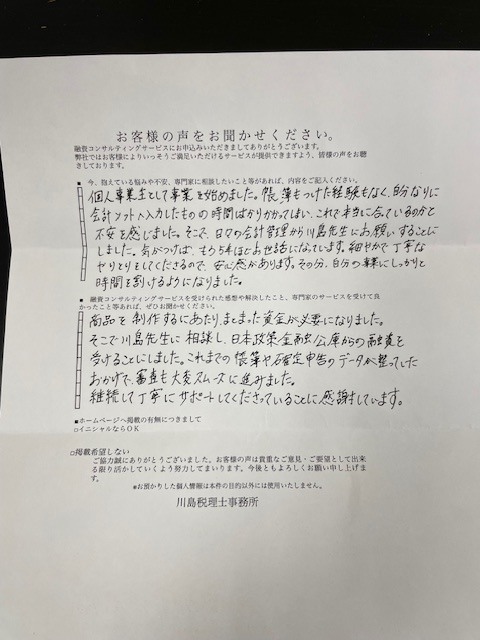 お客様の声をお聞かせください。
融資コンサルティングサービスにお申込みいただきましてありがとうございます。
弊社ではお客様によりいっそうご満足いただけるサービスが提供できますよう、皆様の声をお聴
きしております。
■ 今、抱えている悩みや不安、専門家に相談したいこと等があれば、内容をご記入ください。
個人事業主として事業を始めました。帳簿もつけた経験もなく、自分なりに
会計ソフトへ入力したものの時間ばかりかかってしまい、これで本当に合っているのかと
不安を感じました。そこで、日々の会計管理から川島先生にお願いすることに
しました。気がつけば、もう5年ほどお世話になっています。細やかで丁寧な
やりとりをしてくださるので、安心感があります。その分、自分の事業にしっかりと
時間を割けるようになりました。
■ 融資コンサルティングサービスを受けられた感想や解決したこと、専門家のサービスを受けて良
かったこと等あれば、ぜひお聞かせください。
商品を制作するにあたり、まとまった資金が必要になりました。
そこで川島先生に相談し、日本政策金融公庫からの融資を
受けることにしました。これまでの帳簿や確定申告のデータが整っていた
おかげで、審査も大変スムーズに進みました。
継続して丁寧にサポートしてくださっていることに感謝しています。
■ホームページへ掲載の有無につきまして
○イニシャルならOK
○掲載希望しない
ご協力誠にありがとうございました。お客様の声は貴重なご意見・ご要望として出来
る限り活かしていくよう努力してまいります。今後ともよろしくお願い申し上げま
す。
※お預かりした個人情報は本件の目的以外には使用いたしません。
川島税理士事務所